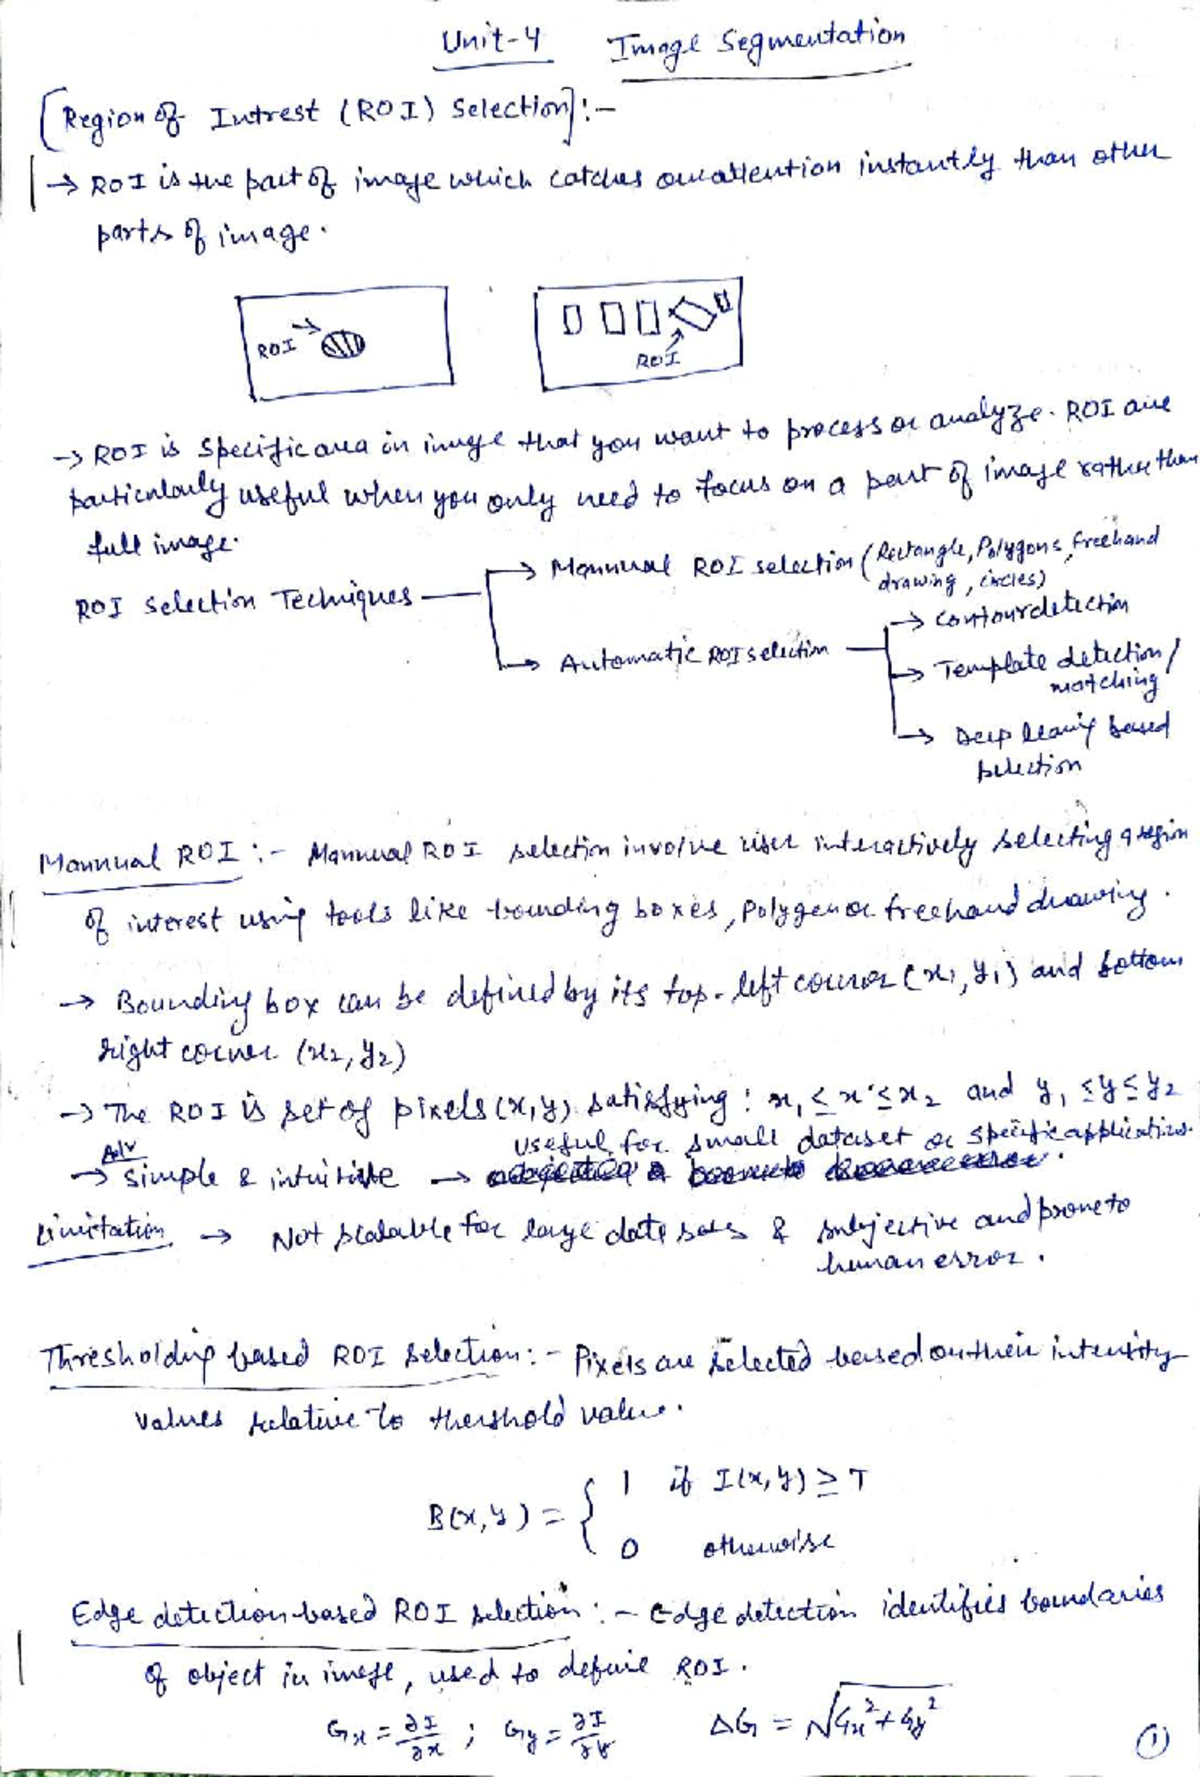 Unit-4 Image Segmentation
[Region of Intrest (ROI) Selection]:-
→ ROI is the part of image which catches our attention instantly than other
parts of image.
ROI
ROI
→ ROI is specific area in image that you want to process or analyze. ROI are
particularly useful when you only need to focus on a part of image rather than
full image.
ROI selection Techniques
→ Mannual ROI selection (Rectangle, Polygons, freehand
drawing, circles)
→ Automatic ROI selection
→ Contour detection
→ Template detection /
matching
→ Deep learning based
selection
Mannual ROI :- Mannual ROI selection involve user interactively selecting a region
of interest using tools like bounding boxes, polygon or freehand drawing.
→ Bounding box can be defined by its top-left corner (x1, y1) and bottom
right corner (x2, y2)
→ The ROI is set of pixels (x, y) satisfying : x1 ≤ x ≤ x2 and y1 ≤ y ≤ y2
useful for small dataset or specific applications.
Adv
→ simple & intuitive →
Limitation → Not scalable for large data sets & subjective and prone to
human error.
Thresholding based ROI selection :- Pixels are selected based on their intensity
values relative to thershold value.
B(x, y) = { 1 if I(x, y) ≥ T
0 otherwise
Edge detection-based ROI selection :- Edge detection identifies boundaries
of object in image, used to define ROI.
Gx = ∂I/∂x ; Gy = ∂I/∂y ΔG = √Gx² + Gy²
1